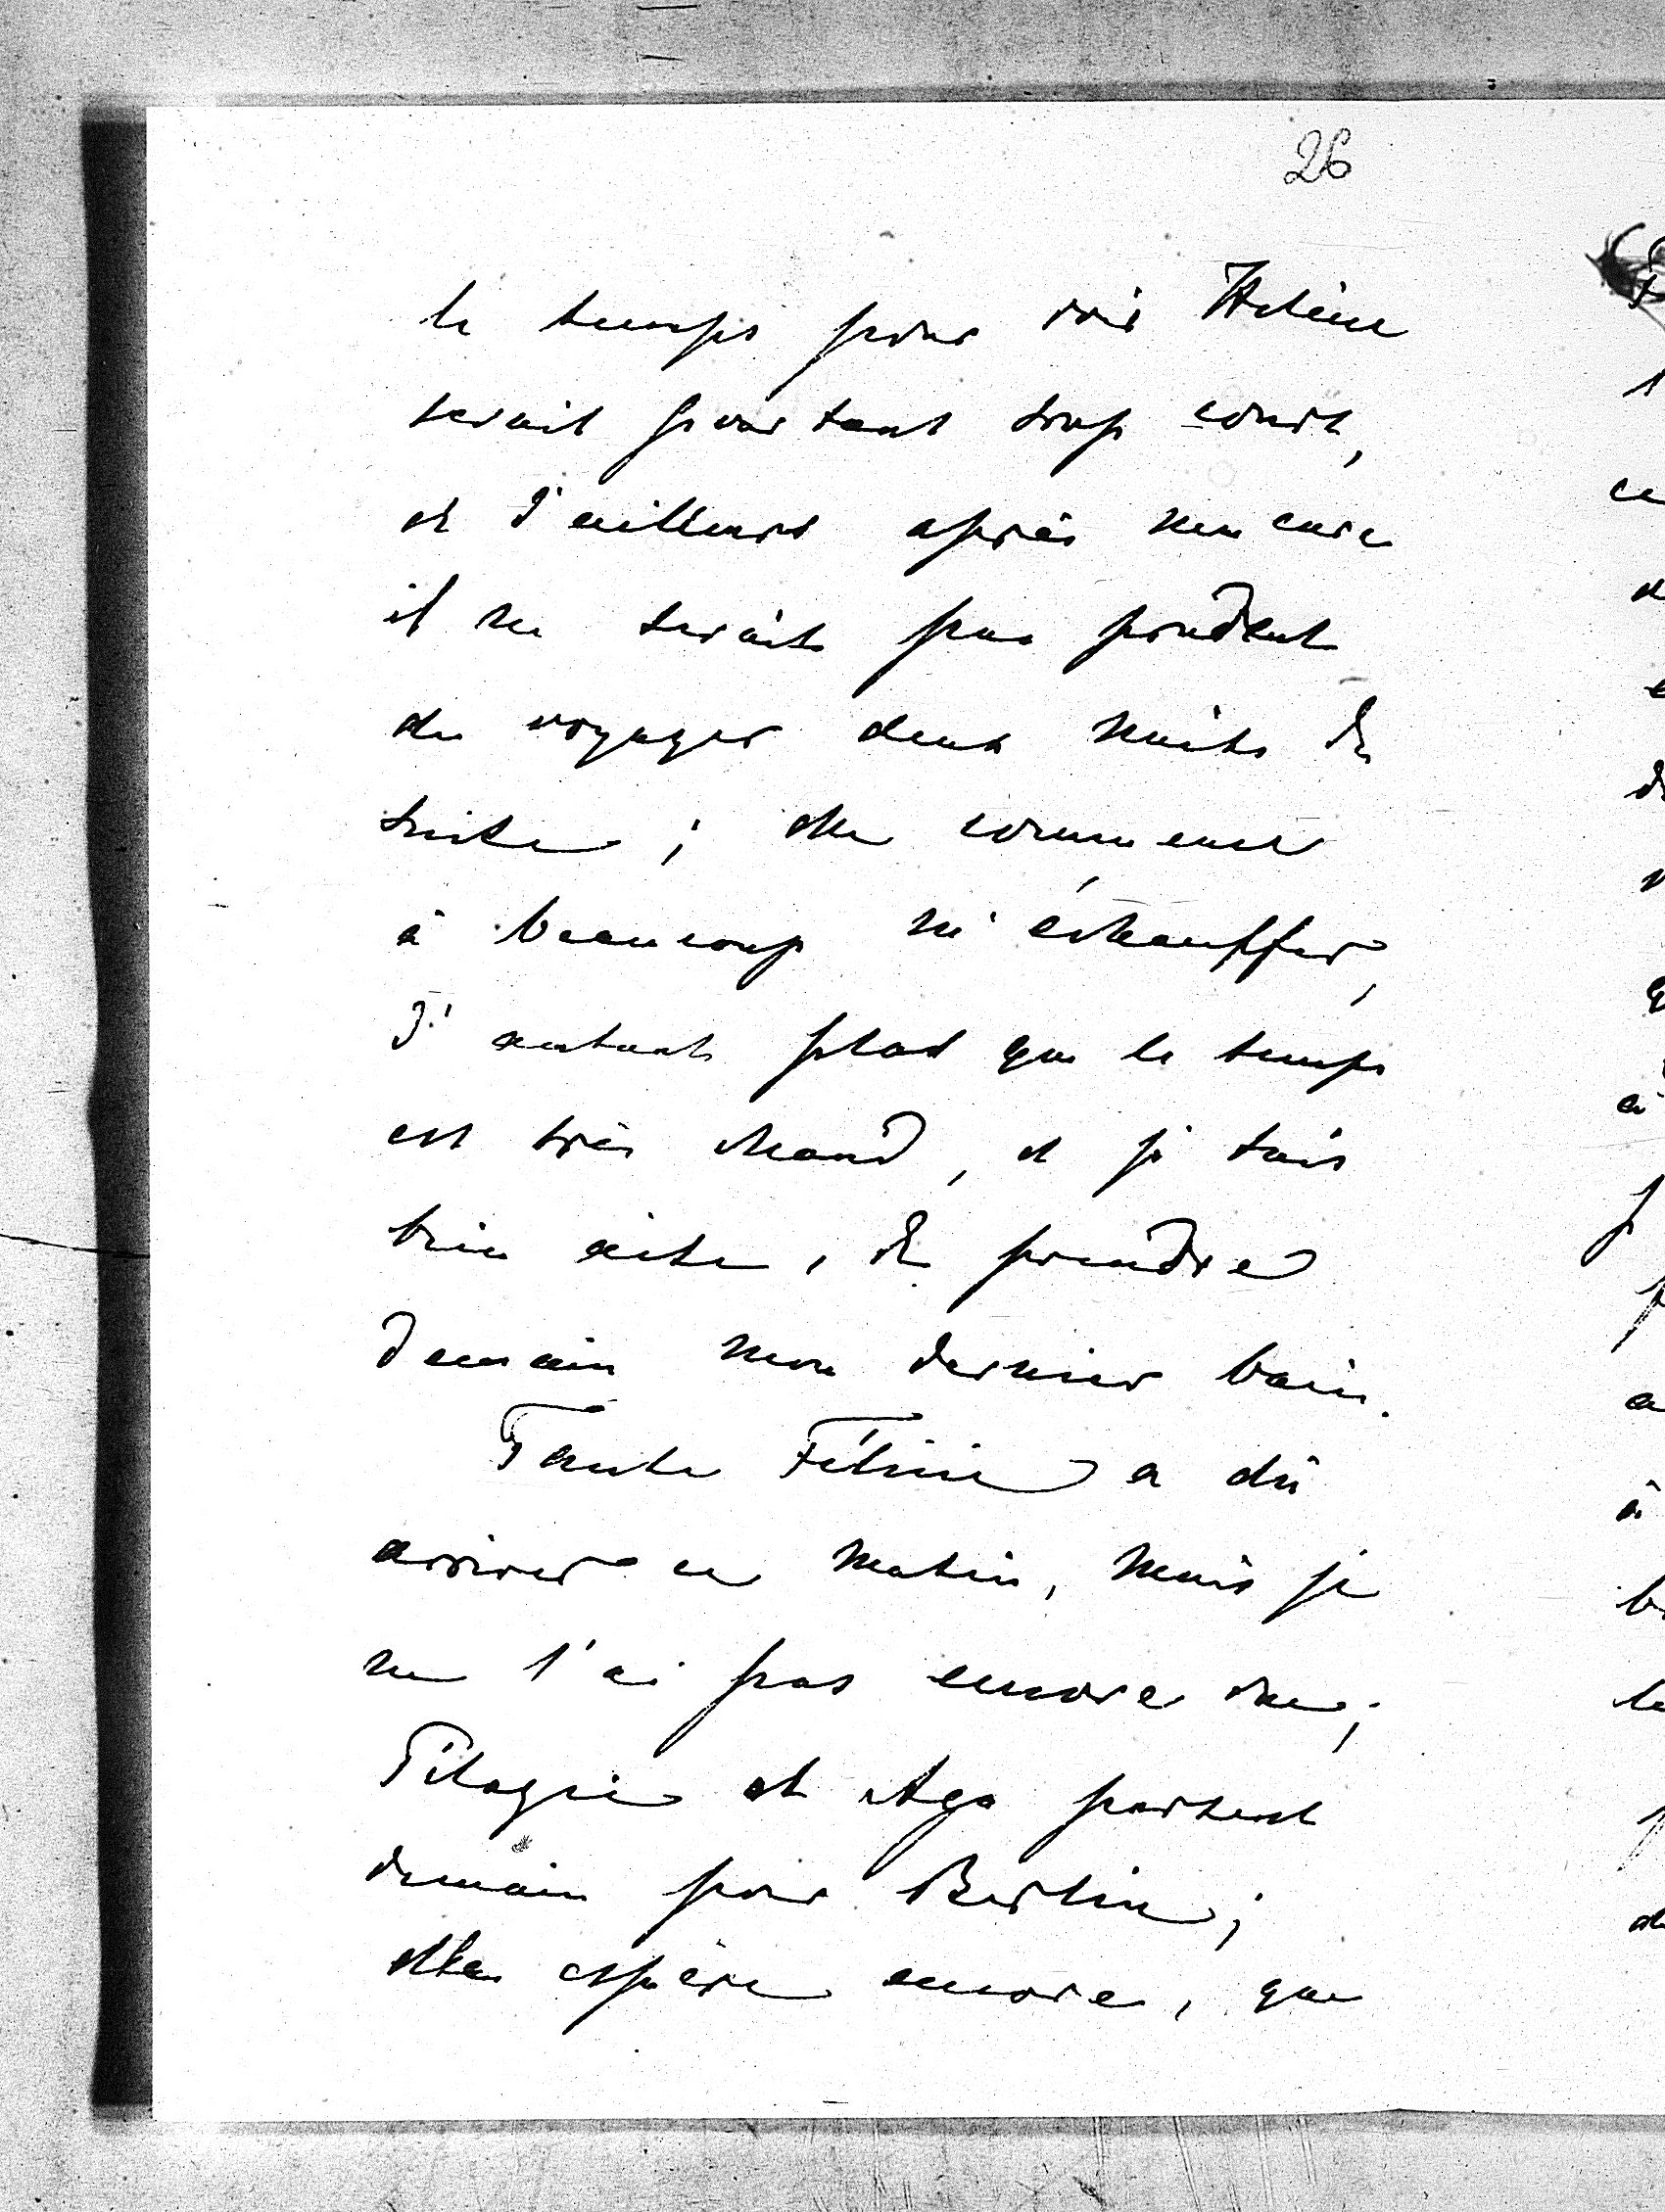 26
le temps pour voir Hélène
serait pourtant trop court,
et d'ailleurs après ma cure
il ne serait pas prudent
de voyager deux nuits de
suite; elle commence
à beaucoup m'échauffer,
d'autant plus que le temps
est très chaud, et je suis
bien aise, de prendre
demain mon dernier bain.
Tante Félicie a dû
arriver ce matin, mais je
ne l'ai pas encore vue;
Pélagie et Aga partent
demain pour Berlin;
elles espère encore, que